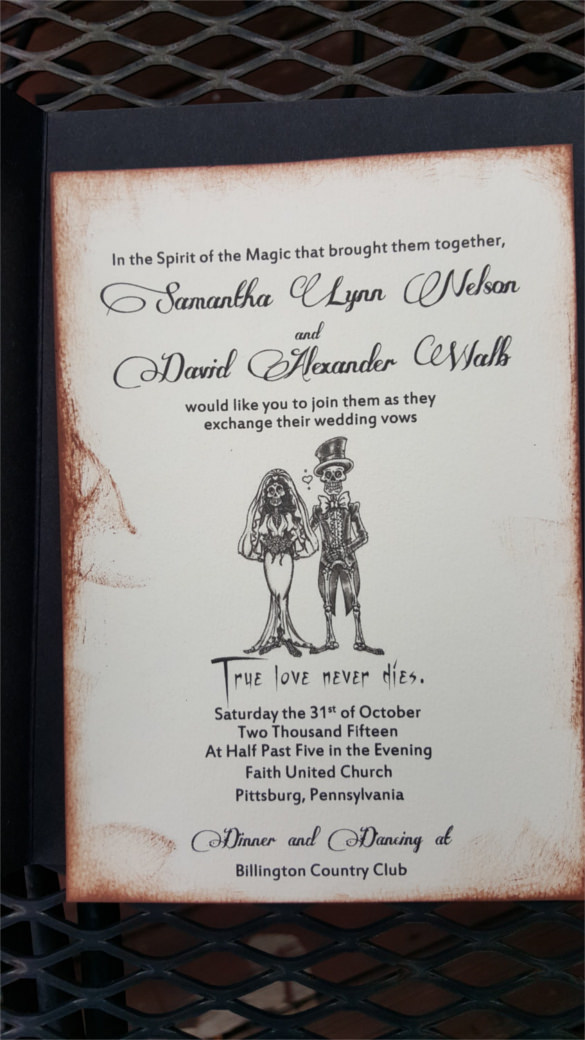 In the Spirit of the Magic that brought them together,
Samantha Lynn Nelson
and
David Alexander Walls
would like you to join them as they
exchange their wedding vows
True love never dies.
Saturday the 31st of October
Two Thousand Fifteen
At Half Past Five in the Evening
Faith United Church
Pittsburg, Pennsylvania
Dinner and Dancing at
Billington Country Club